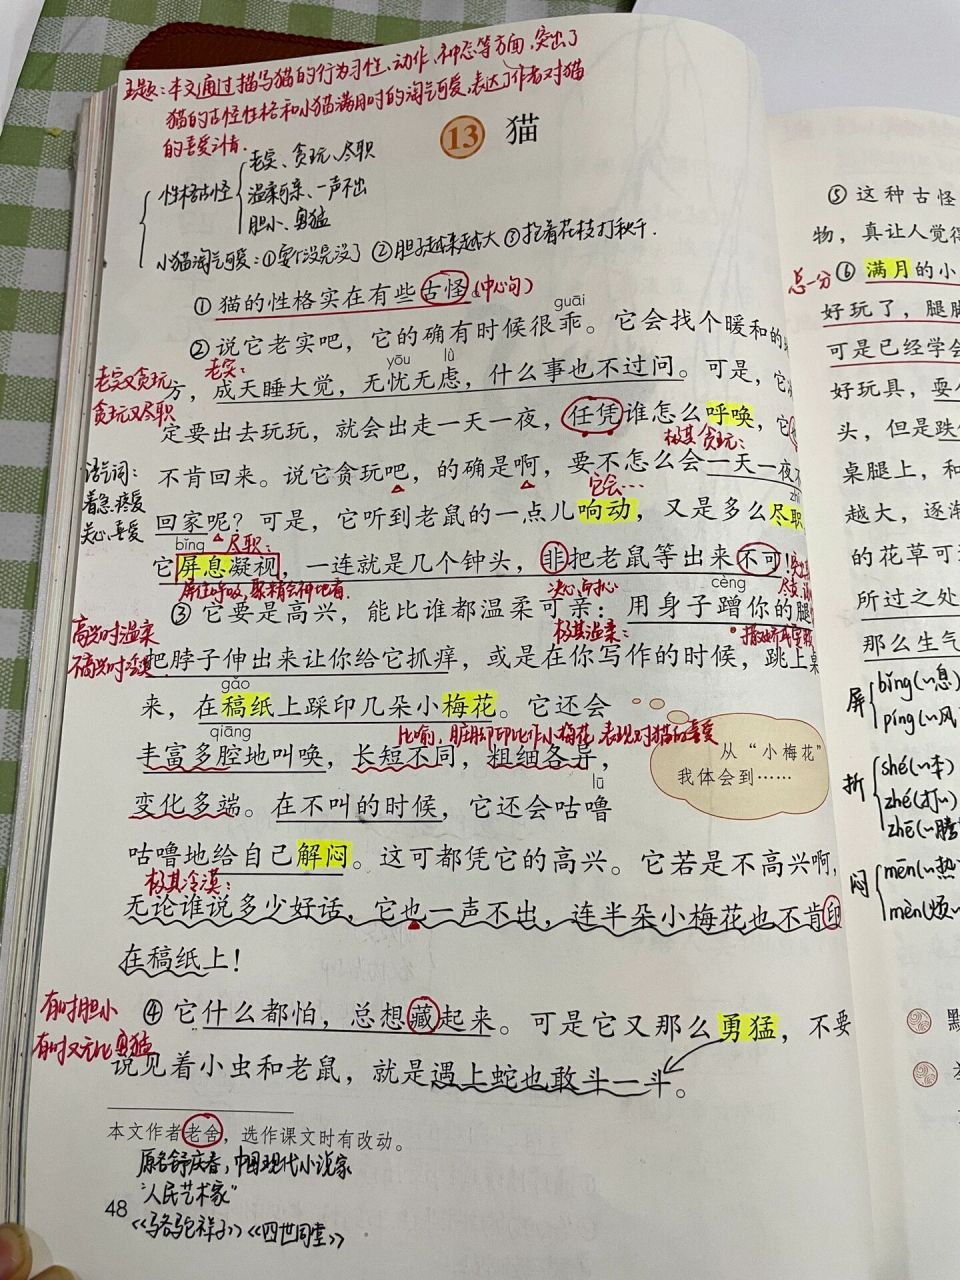 主题：本文通过描写猫的行为习性、动作、神态等方面，突出了
猫的古怪性格和小猫满月时的淘气可爱，表达了作者对猫
的喜爱之情。
13 猫
性格古怪
老实、贪玩、尽职
温柔可亲、一声不出
胆小、勇猛
小猫淘气可爱：①耍个没完没了 ②胆子越来越大 ③抱着花枝打秋千.
①猫的性格实在有些古怪。
(中心句)
guāi
②说它老实吧，它的确有时候很乖。它会找个暖和的地
老实又贪玩
贪玩又尽职
老实：
yōu lǜ
方，成天睡大觉，无忧无虑，什么事也不过问。可是，它
定要出去玩玩，就会出走一天一夜，任凭谁怎么呼唤，它
极其贪玩：
语气词：
着急、疼爱
关心、喜爱
不肯回来。说它贪玩吧，的确是啊，要不怎么会一天一夜不
它会…
回家呢？可是，它听到老鼠的一点儿响动，又是多么尽职
bǐng
尽职：
它屏息凝视，一连就是几个钟头，非把老鼠等出来不可！
屏住呼吸，聚精会神地看.
决心、耐心
cèng
③它要是高兴，能比谁都温柔可亲：用身子蹭你的腿
极其温柔：
高兴时温柔
不高兴时冷漠
把脖子伸出来让你给它抓痒，或是在你写作的时候，跳上桌
gǎo
来，在稿纸上踩印几朵小梅花。它还会
比喻，脏脚印比作小梅花，表现对猫的喜爱
qiāng
丰富多腔地叫唤，长短不同，粗细各异，
从“小梅花”
我体会到……
lū
变化多端。在不叫的时候，它还会咕噜
咕噜地给自己解闷。这可都凭它的高兴。它若是不高兴啊，
极其冷漠：
无论谁说多少好话，它也一声不出，连半朵小梅花也不肯印
在稿纸上！
有时胆小
有时又无比勇猛
④它什么都怕，总想藏起来。可是它又那么勇猛，不要
说见着小虫和老鼠，就是遇上蛇也敢斗一斗。
本文作者老舍，选作课文时有改动。
原名舒庆春，中国现代小说家
“人民艺术家”
48
《骆驼祥子》《四世同堂》
⑤这种古怪
物，真让人觉得
总—分
⑥满月的小
好玩了，腿脚
可是已经学会
好玩具，耍
头，但是跌
桌腿上，和
越大，逐渐
的花草可
所过之处
那么生气
屏
bǐng(~息)
píng(~风
折
shé(~本)
zhé(打~)
zhē(~腾
闷
mēn(~热
mèn(烦~